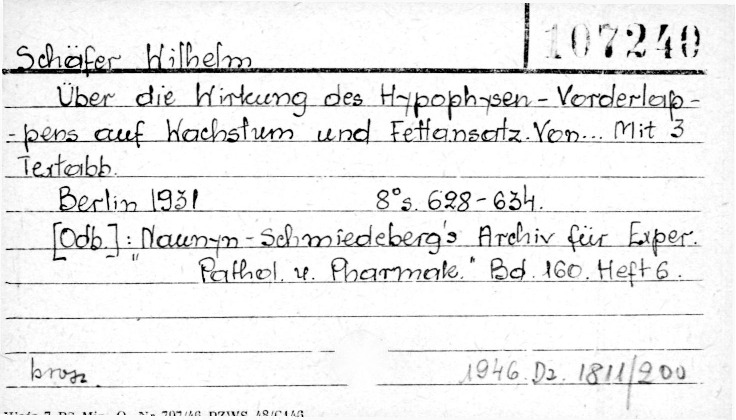 107240
Schäfer Wilhelm
Über die Wirkung des Hypophysen-Vorderlap-
-pens auf Wachstum und Fettansatz. Von... Mit 3
Textabb.
Berlin 1931 8° s. 628-634.
[Odb.]: "Naunyn-Schmiedeberg's Archiv für Exper.
Pathol. u. Pharmak." Bd. 160. Heft 6.
brosz. 1946. Dz. 1811/200